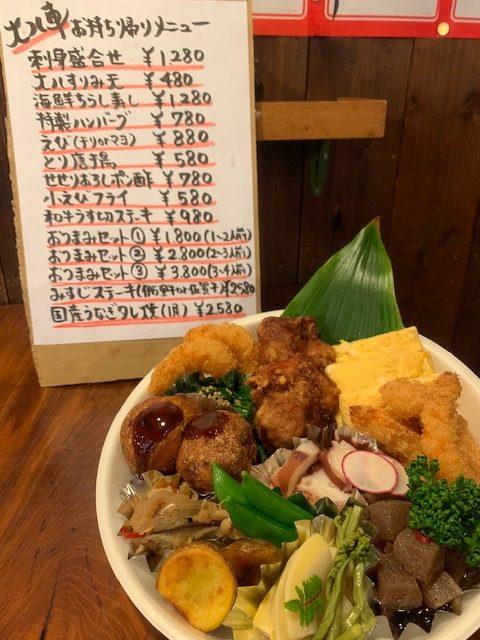 お持ち帰りメニュー
刺身盛合せ ¥1,280
すりみ天 ¥480
海鮮ちらし寿し ¥1,280
特製ハンバーグ ¥780
えび(チリorマヨ) ¥880
とり唐揚 ¥580
せせりおろしポン酢 ¥780
小えびフライ ¥580
和牛うす切ステーキ ¥980
おつまみセット① ¥1,800(1~2人前)
おつまみセット② ¥2,800(2~3人前)
おつまみセット③ ¥3,800(3~4人前)
みすじステーキ( ¥2580
国産うなぎタレ焼(1尾) ¥2580